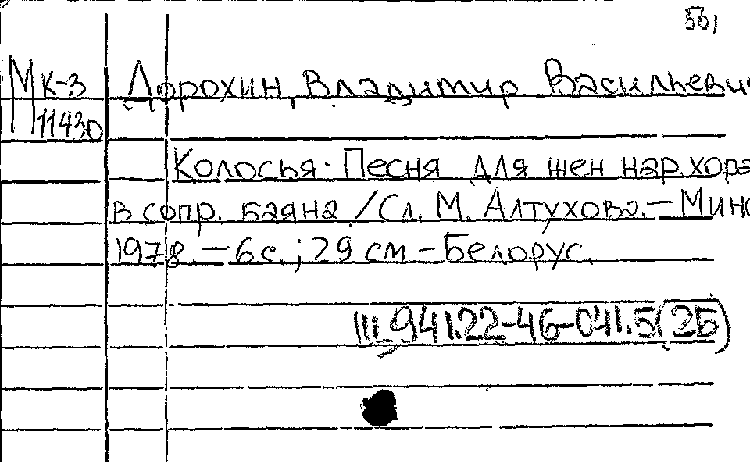 Мк-3 Дорохин, Владимир Васильевич
11430
Колосья. Песня для жен нар. хора
в сопр. баяна / Сл. М. Алтухова. — Минс
1978. — 6 с.; 29 см — Белорус.
III 941.22-46-041.5(2Б)